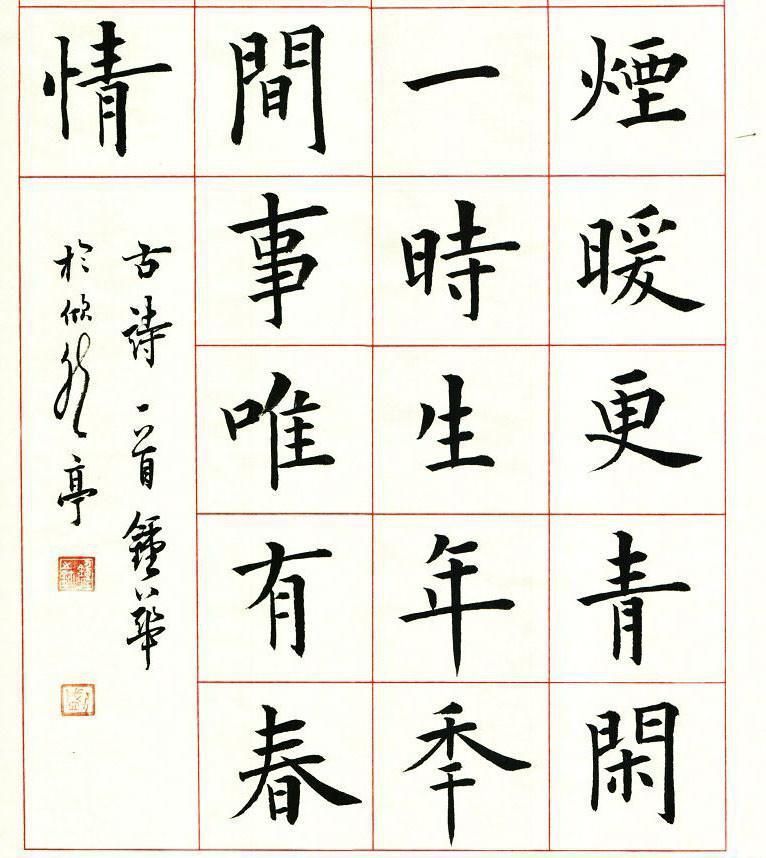 煙暖更青閑
一時生年秊
間事唯有春
情
古詩一首 鍾
於然亭